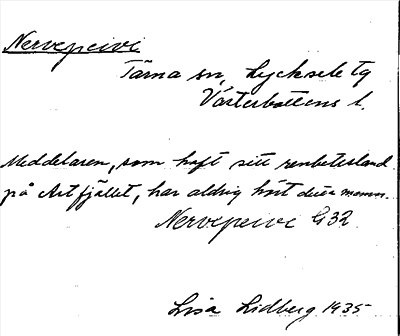 Nervepeivi
Tärna sn, Lycksele tg
Västerbottens l.
Meddelaren, som haft sitt renbetesland
på Artfjället, har aldrig hört detta namn.
Nervepeivi G32
Lisa Lidberg 1935